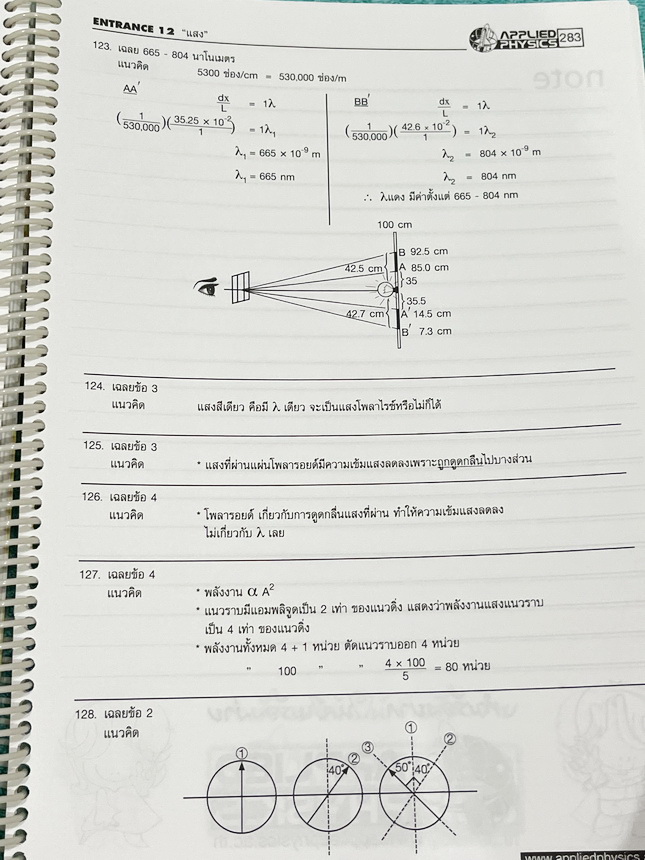 ENTRANCE 12 "แสง"
APPLIED PHYSICS 283
123. เฉลย 665 - 804 นาโนเมตร
แนวคิด 5300 ช่อง/cm = 530,000 ช่อง/m
AA′ BB′
dx/L = 1λ
(1/530,000)(35.25 × 10⁻²/1) = 1λ₁
λ₁ = 665 × 10⁻⁹ m
λ₁ = 665 nm
dx/L = 1λ
(1/530,000)(42.6 × 10⁻²/1) = 1λ₂
λ₂ = 804 × 10⁻⁹ m
λ₂ = 804 nm
∴ λแดง มีค่าตั้งแต่ 665 - 804 nm
100 cm
B 92.5 cm
42.5 cm A 85.0 cm
35
35.5
42.7 cm A′ 14.5 cm
B′ 7.3 cm
124. เฉลยข้อ 3
แนวคิด แสงสีเดียว คือมี λ เดียว จะเป็นแสงโพลาไรซ์หรือไม่ก็ได้
125. เฉลยข้อ 3
แนวคิด * แสงที่ผ่านแผ่นโพลารอยด์มีความเข้มแสงลดลงเพราะถูกดูดกลืนไปบางส่วน
126. เฉลยข้อ 4
แนวคิด * โพลารอยด์ เกี่ยวกับการดูดกลื่นแสงที่ผ่าน ทำให้ความเข้มแสงลดลง
ไม่เกี่ยวกับ λ เลย
127. เฉลยข้อ 4
แนวคิด * พลังงาน α A²
* แนวราบมีแอมพลิจูดเป็น 2 เท่า ของแนวดิ่ง แสดงว่าพลังงานแสงแนวราบ
เป็น 4 เท่า ของแนวดิ่ง
* พลังงานทั้งหมด 4 + 1 หน่วย ตัดแนวราบออก 4 หน่วย
" 100 " " 4 × 100/5 = 80 หน่วย
128. เฉลยข้อ 2
แนวคิด
① ② 40° ③ ① ② 50° 40°
www.appliedphysics